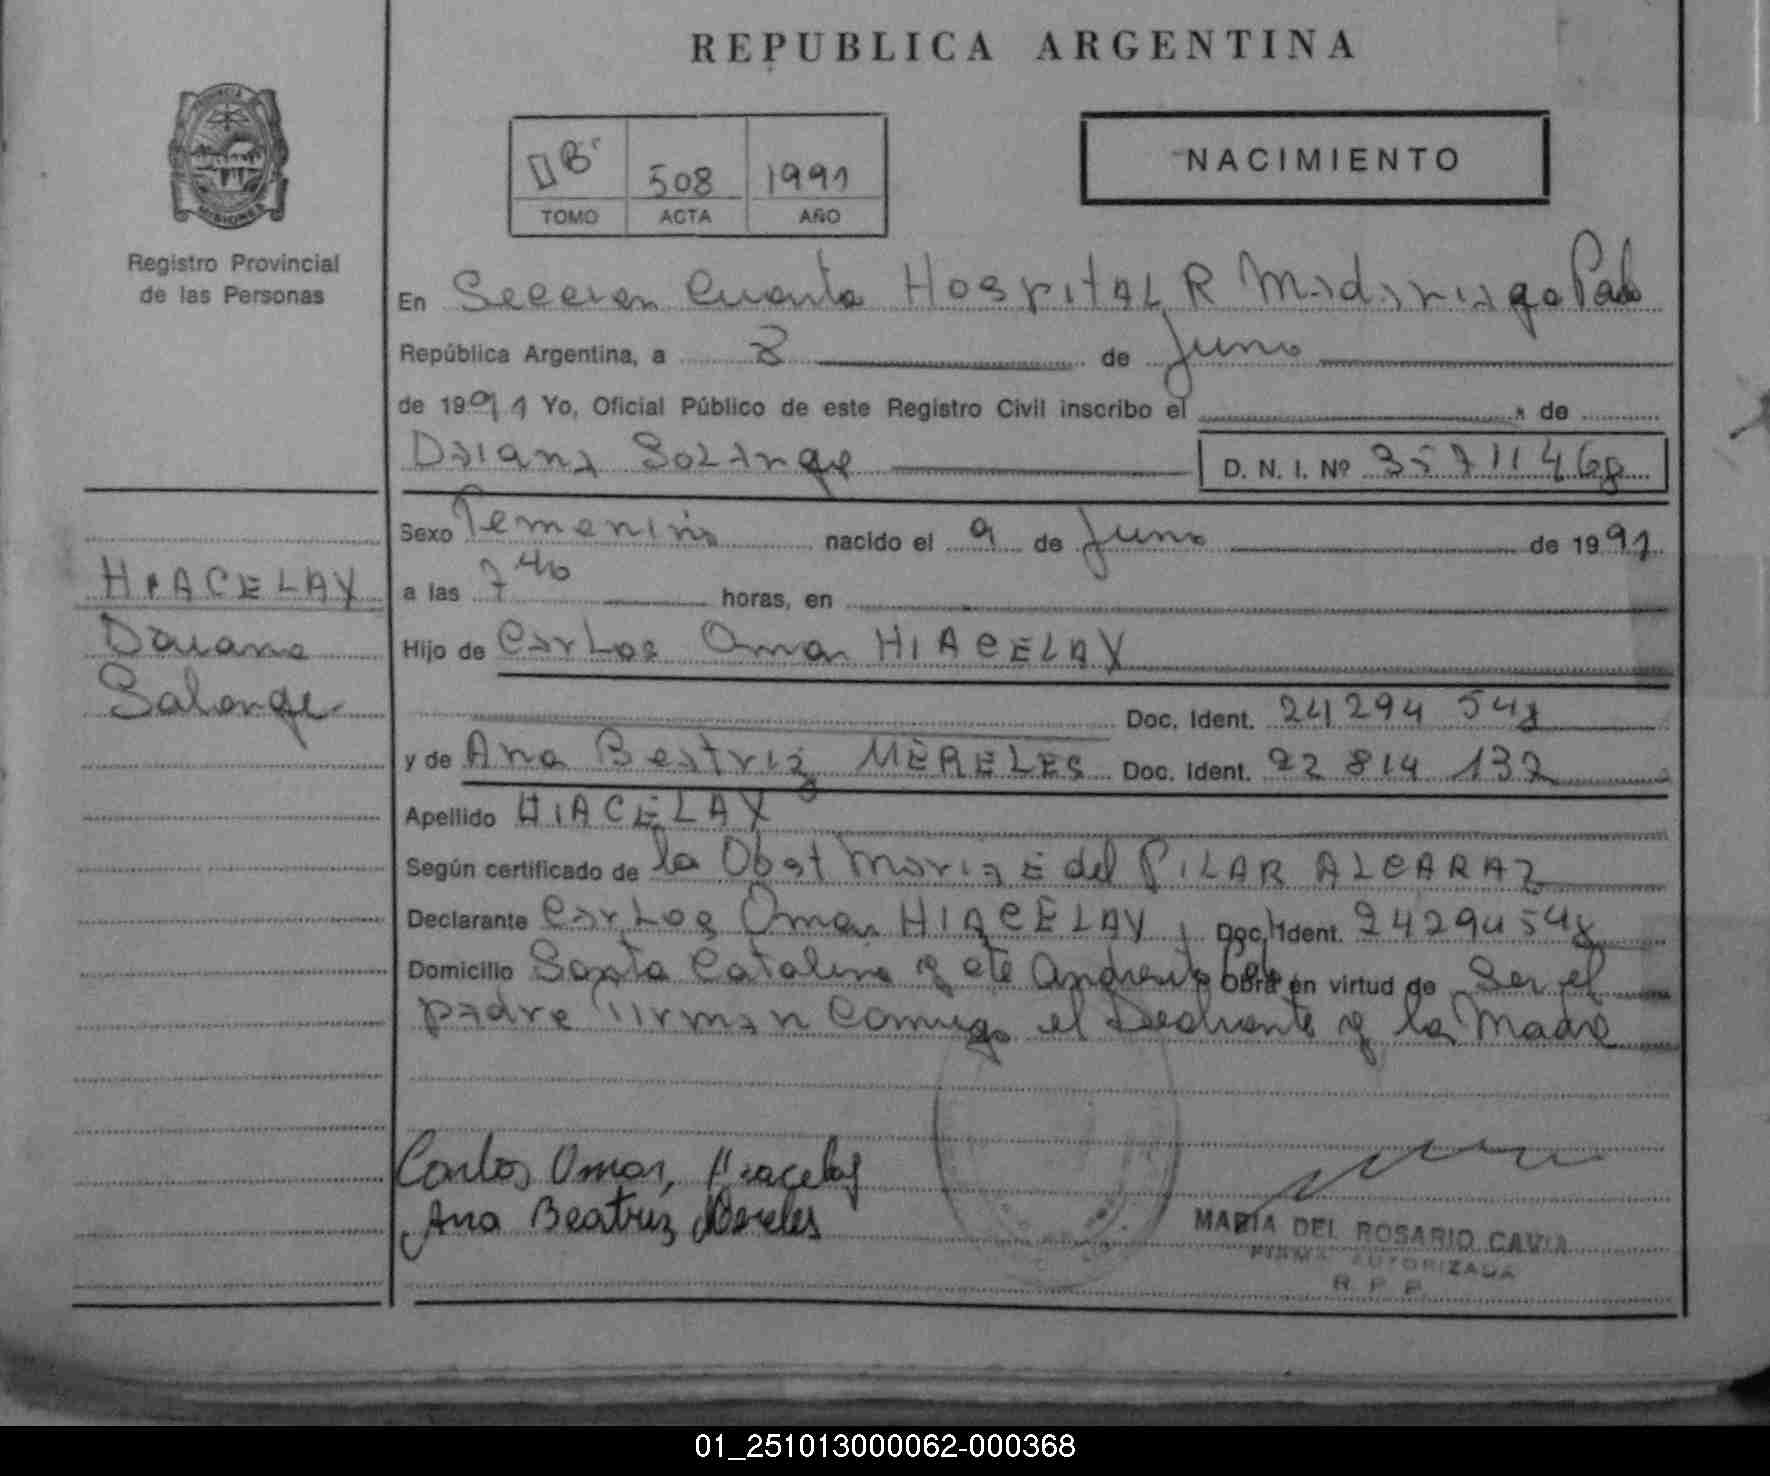 REPUBLICA ARGENTINA
PROVINCIA
MISIONES
Registro Provincial
de las Personas
508 1991
TOMO ACTA AÑO
NACIMIENTO
En Seccion Cuarta HospitAL R Madariaga
República Argentina, a de Junio
de 1991 Yo, Oficial Público de este Registro Civil inscribo el de
Daiana Solange D. N. I. Nº 35711468
Sexo Femenino nacido el 9 de Junio de 1991
a las 7 40 horas, en
Hijo de Carlos Omar HIACELAY
Doc. Ident. 24 294 548
y de Ana Beatriz MERELES Doc. Ident. 22 814 132
Apellido HIACELAY
Según certificado de la Obst Maria E del PILAR ALCARAZ
Declarante Carlos Omar HIACELAY Doc. Ident. 24294548
Domicilio Santa Catalina y Obra en virtud de Ser el
padre Firman Conmigo el y la Madre
HIACELAY
Daiana
Solange
Carlos Omar, Hiacelay
Ana Beatriz Mereles
MARIA DEL ROSARIO CAVIA
FIRMA AUTORIZADA
R. P. P.
01_251013000062-000368